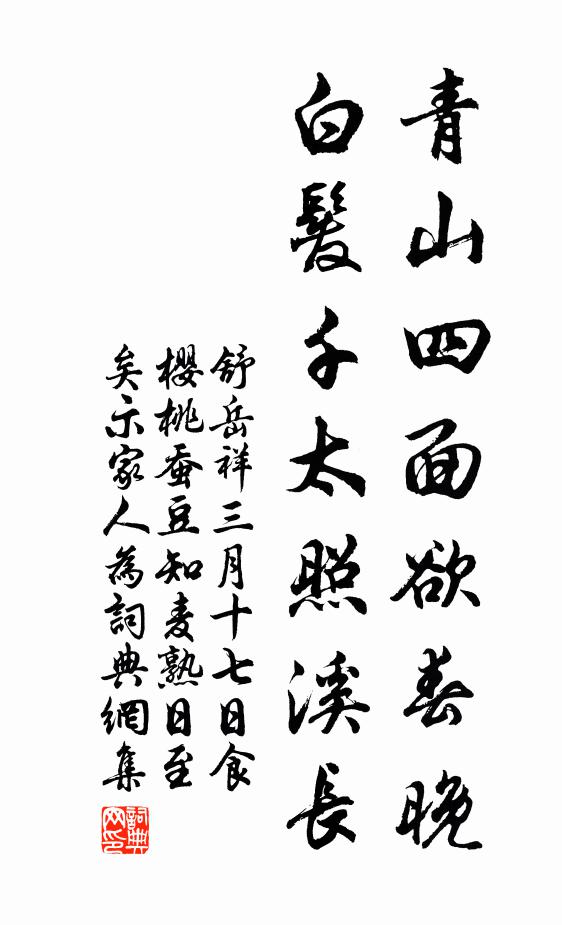 青山四面欲春晚
白髮千太照溪長
舒岳祥三月十七日食
櫻桃蚕豆知麦熟日至
矣示家人為詞典網集
詞典网印